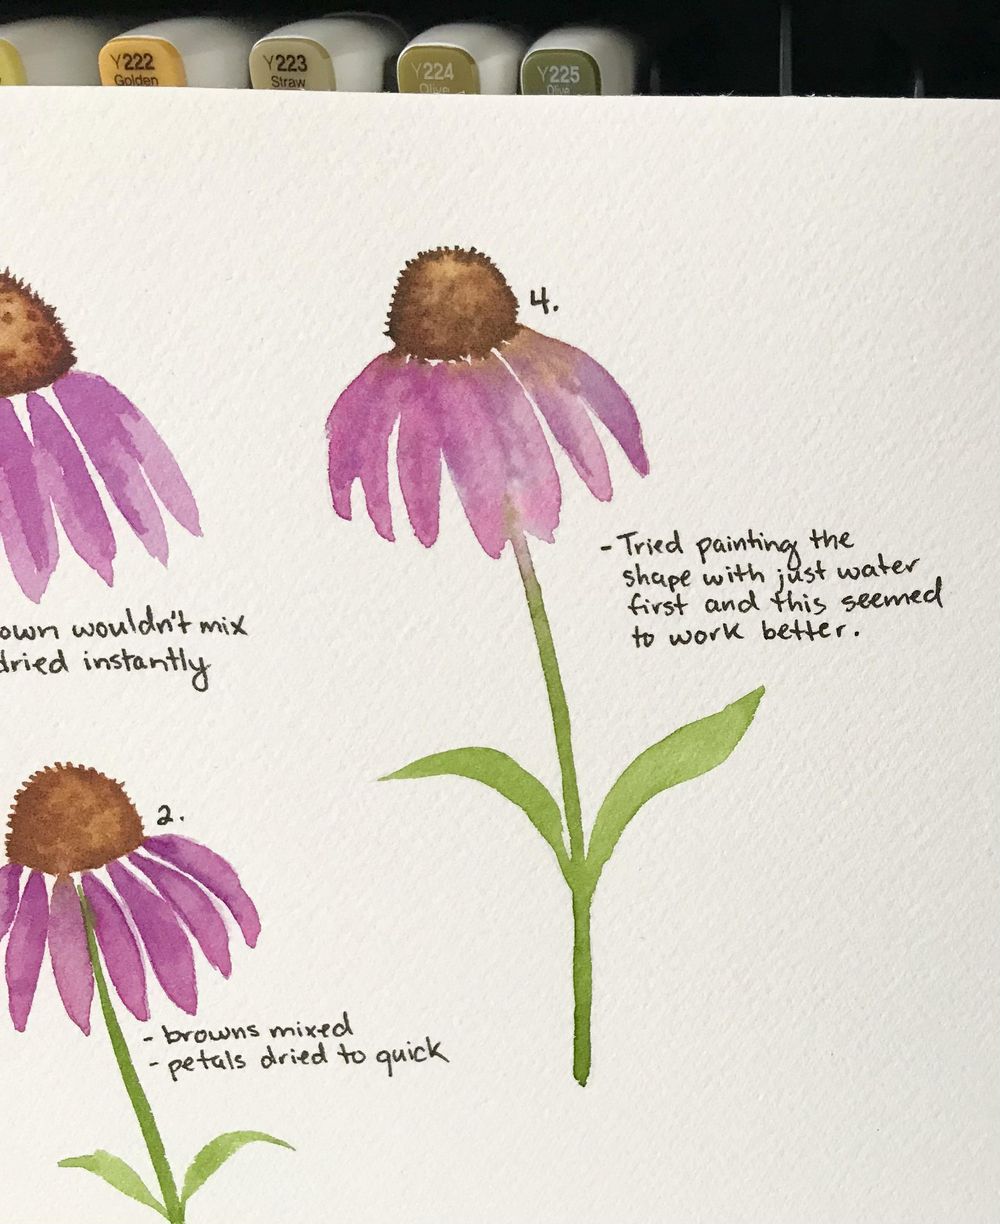 Y222
Golden
Y223
Straw
Y224
Olive
Y225
Olive
4.
- Tried painting the
shape with just water
first and this seemed
to work better.
own wouldn't mix
dried instantly
2.
- browns mixed
- petals dried to quick